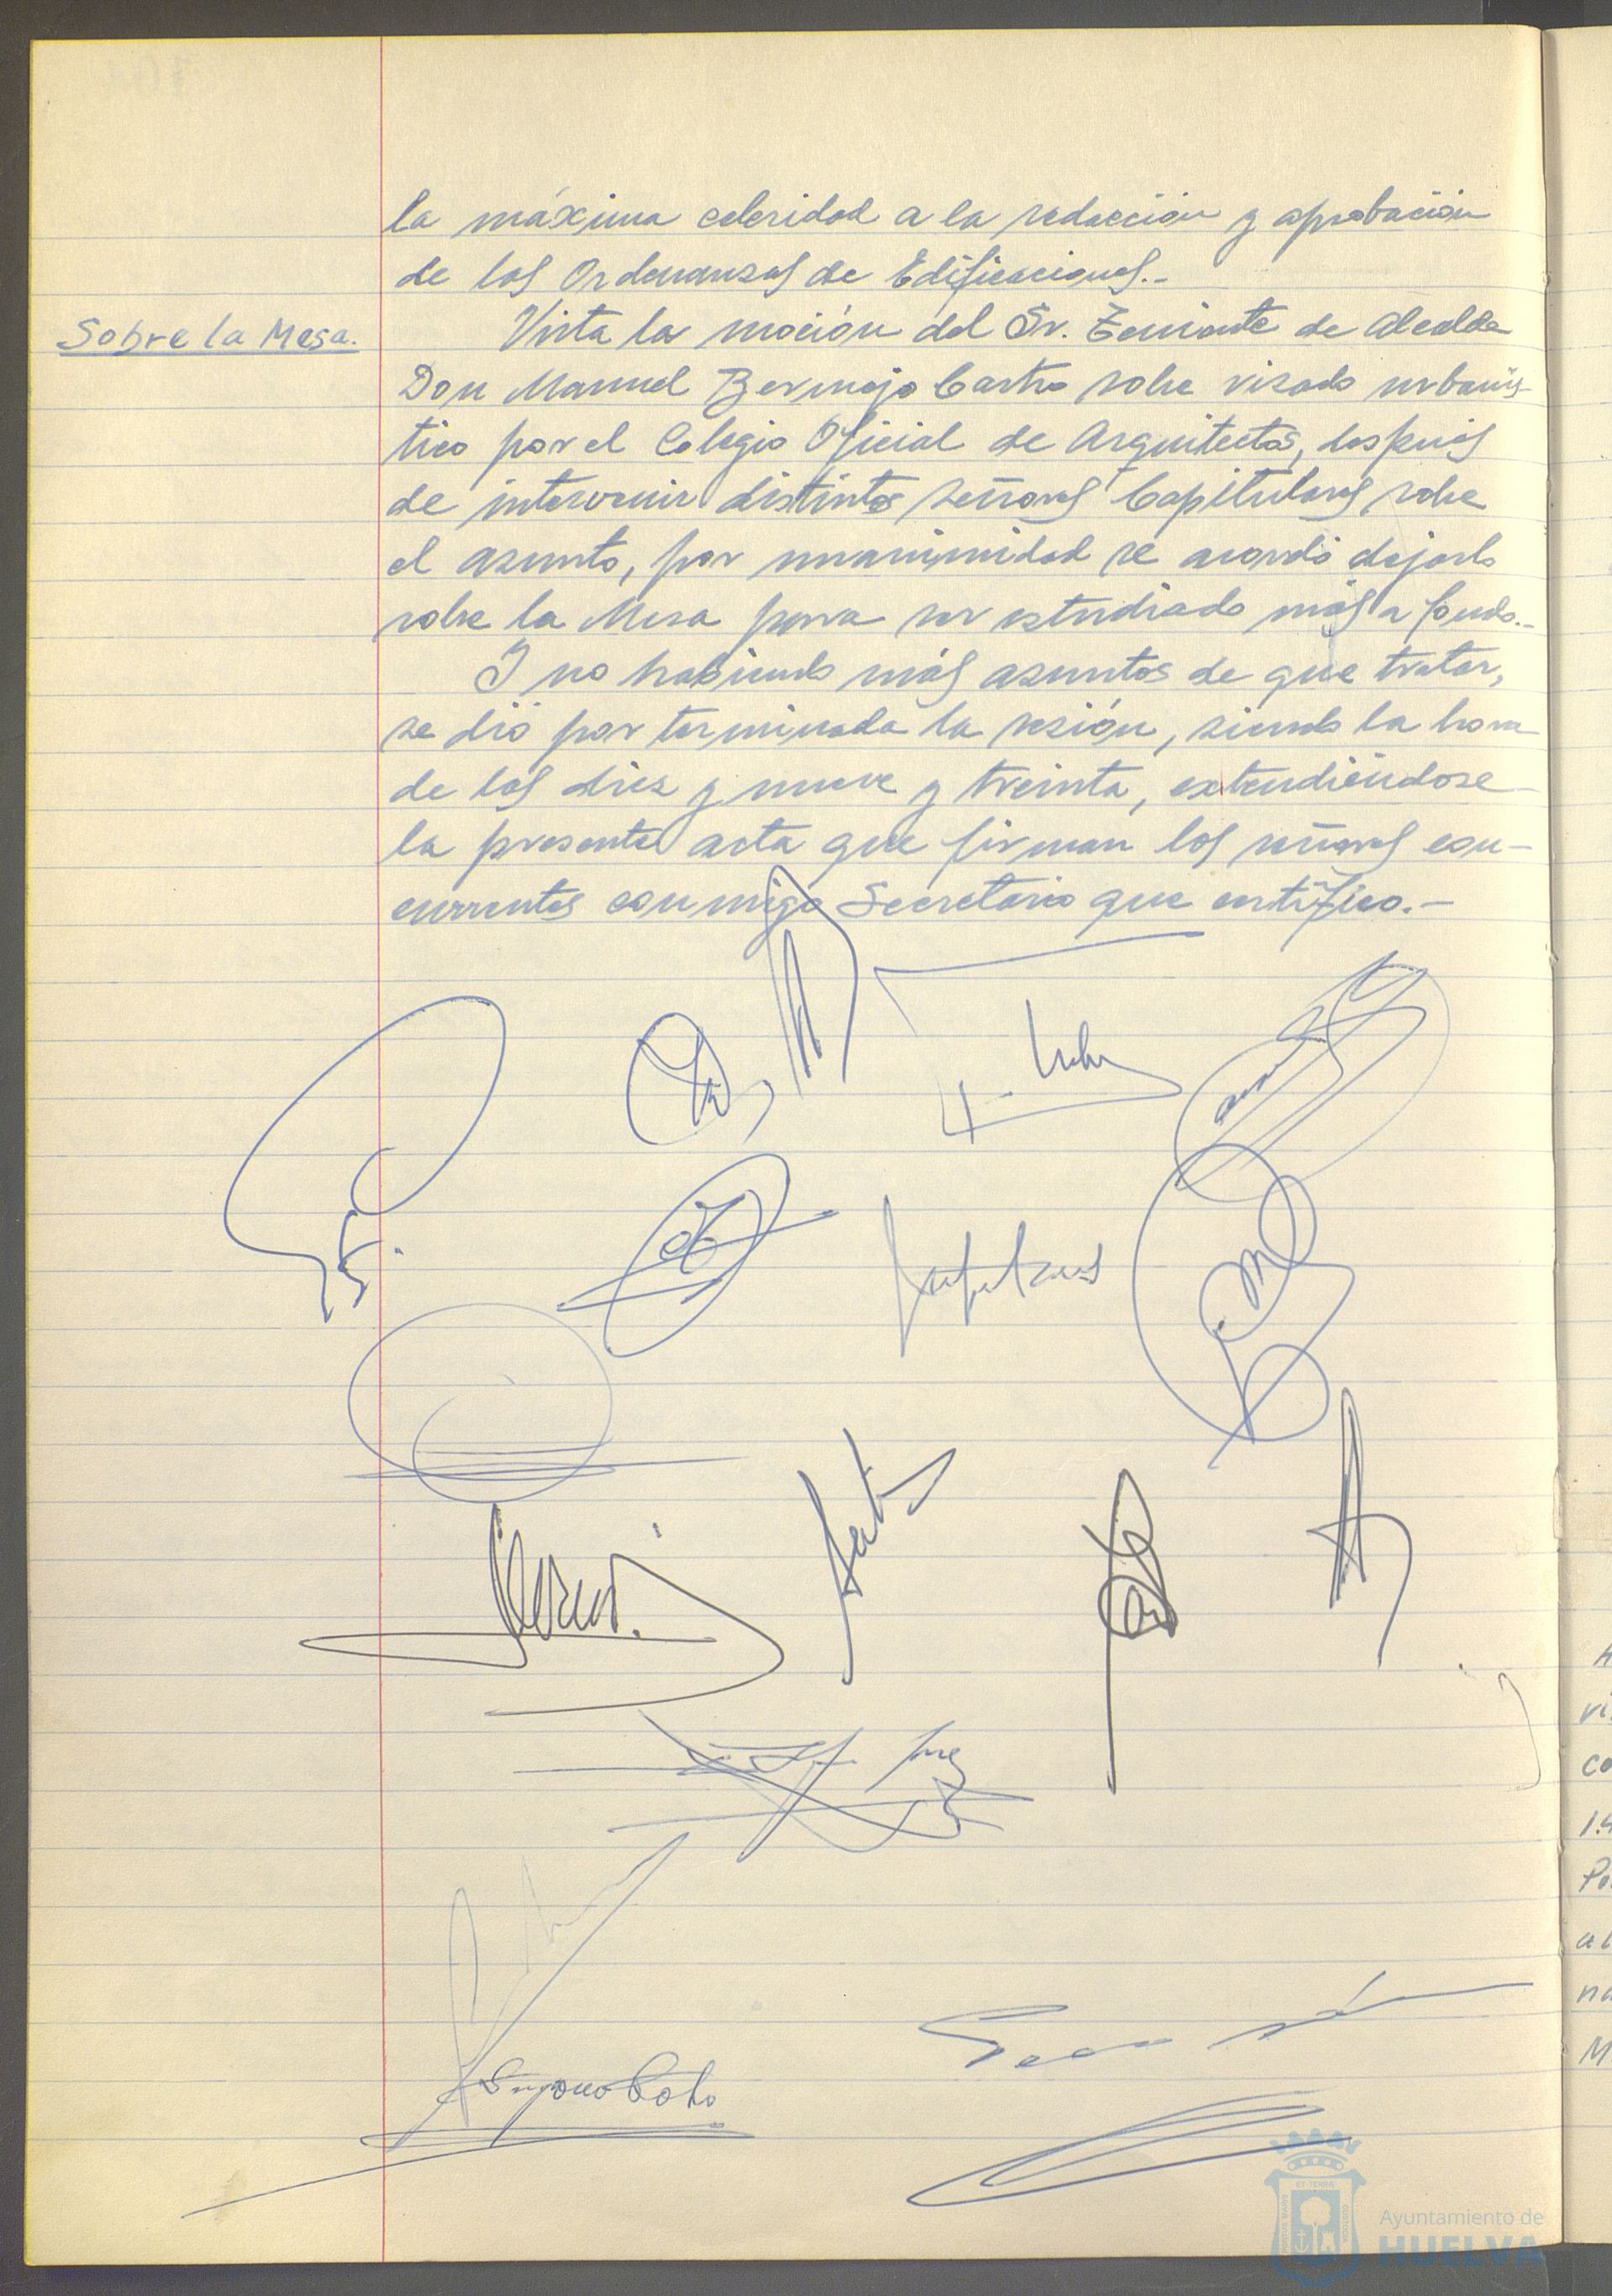 la máxima celeridad a la redacción y aprobación
de las Ordenanzas de Edificaciones.-
Sobre la Mesa.
Vista la moción del Sr. Teniente de Alcalde
Don Manuel Bermejo Castro sobre visado urbanís-
tico por el Colegio Oficial de Arquitectos, después
de intervenir distintos señores Capitulares sobre
el asunto, por unanimidad se acordó dejarlo
sobre la Mesa para ser estudiado más a fondo.-
Y no habiendo más asuntos de que tratar,
se dió por terminada la sesión, siendo la hora
de las diez y nueve y treinta, extendiéndose
la presente acta que firman los señores con-
currentes conmigo Secretario que certifico.-
Ayuntamiento de
HUELVA